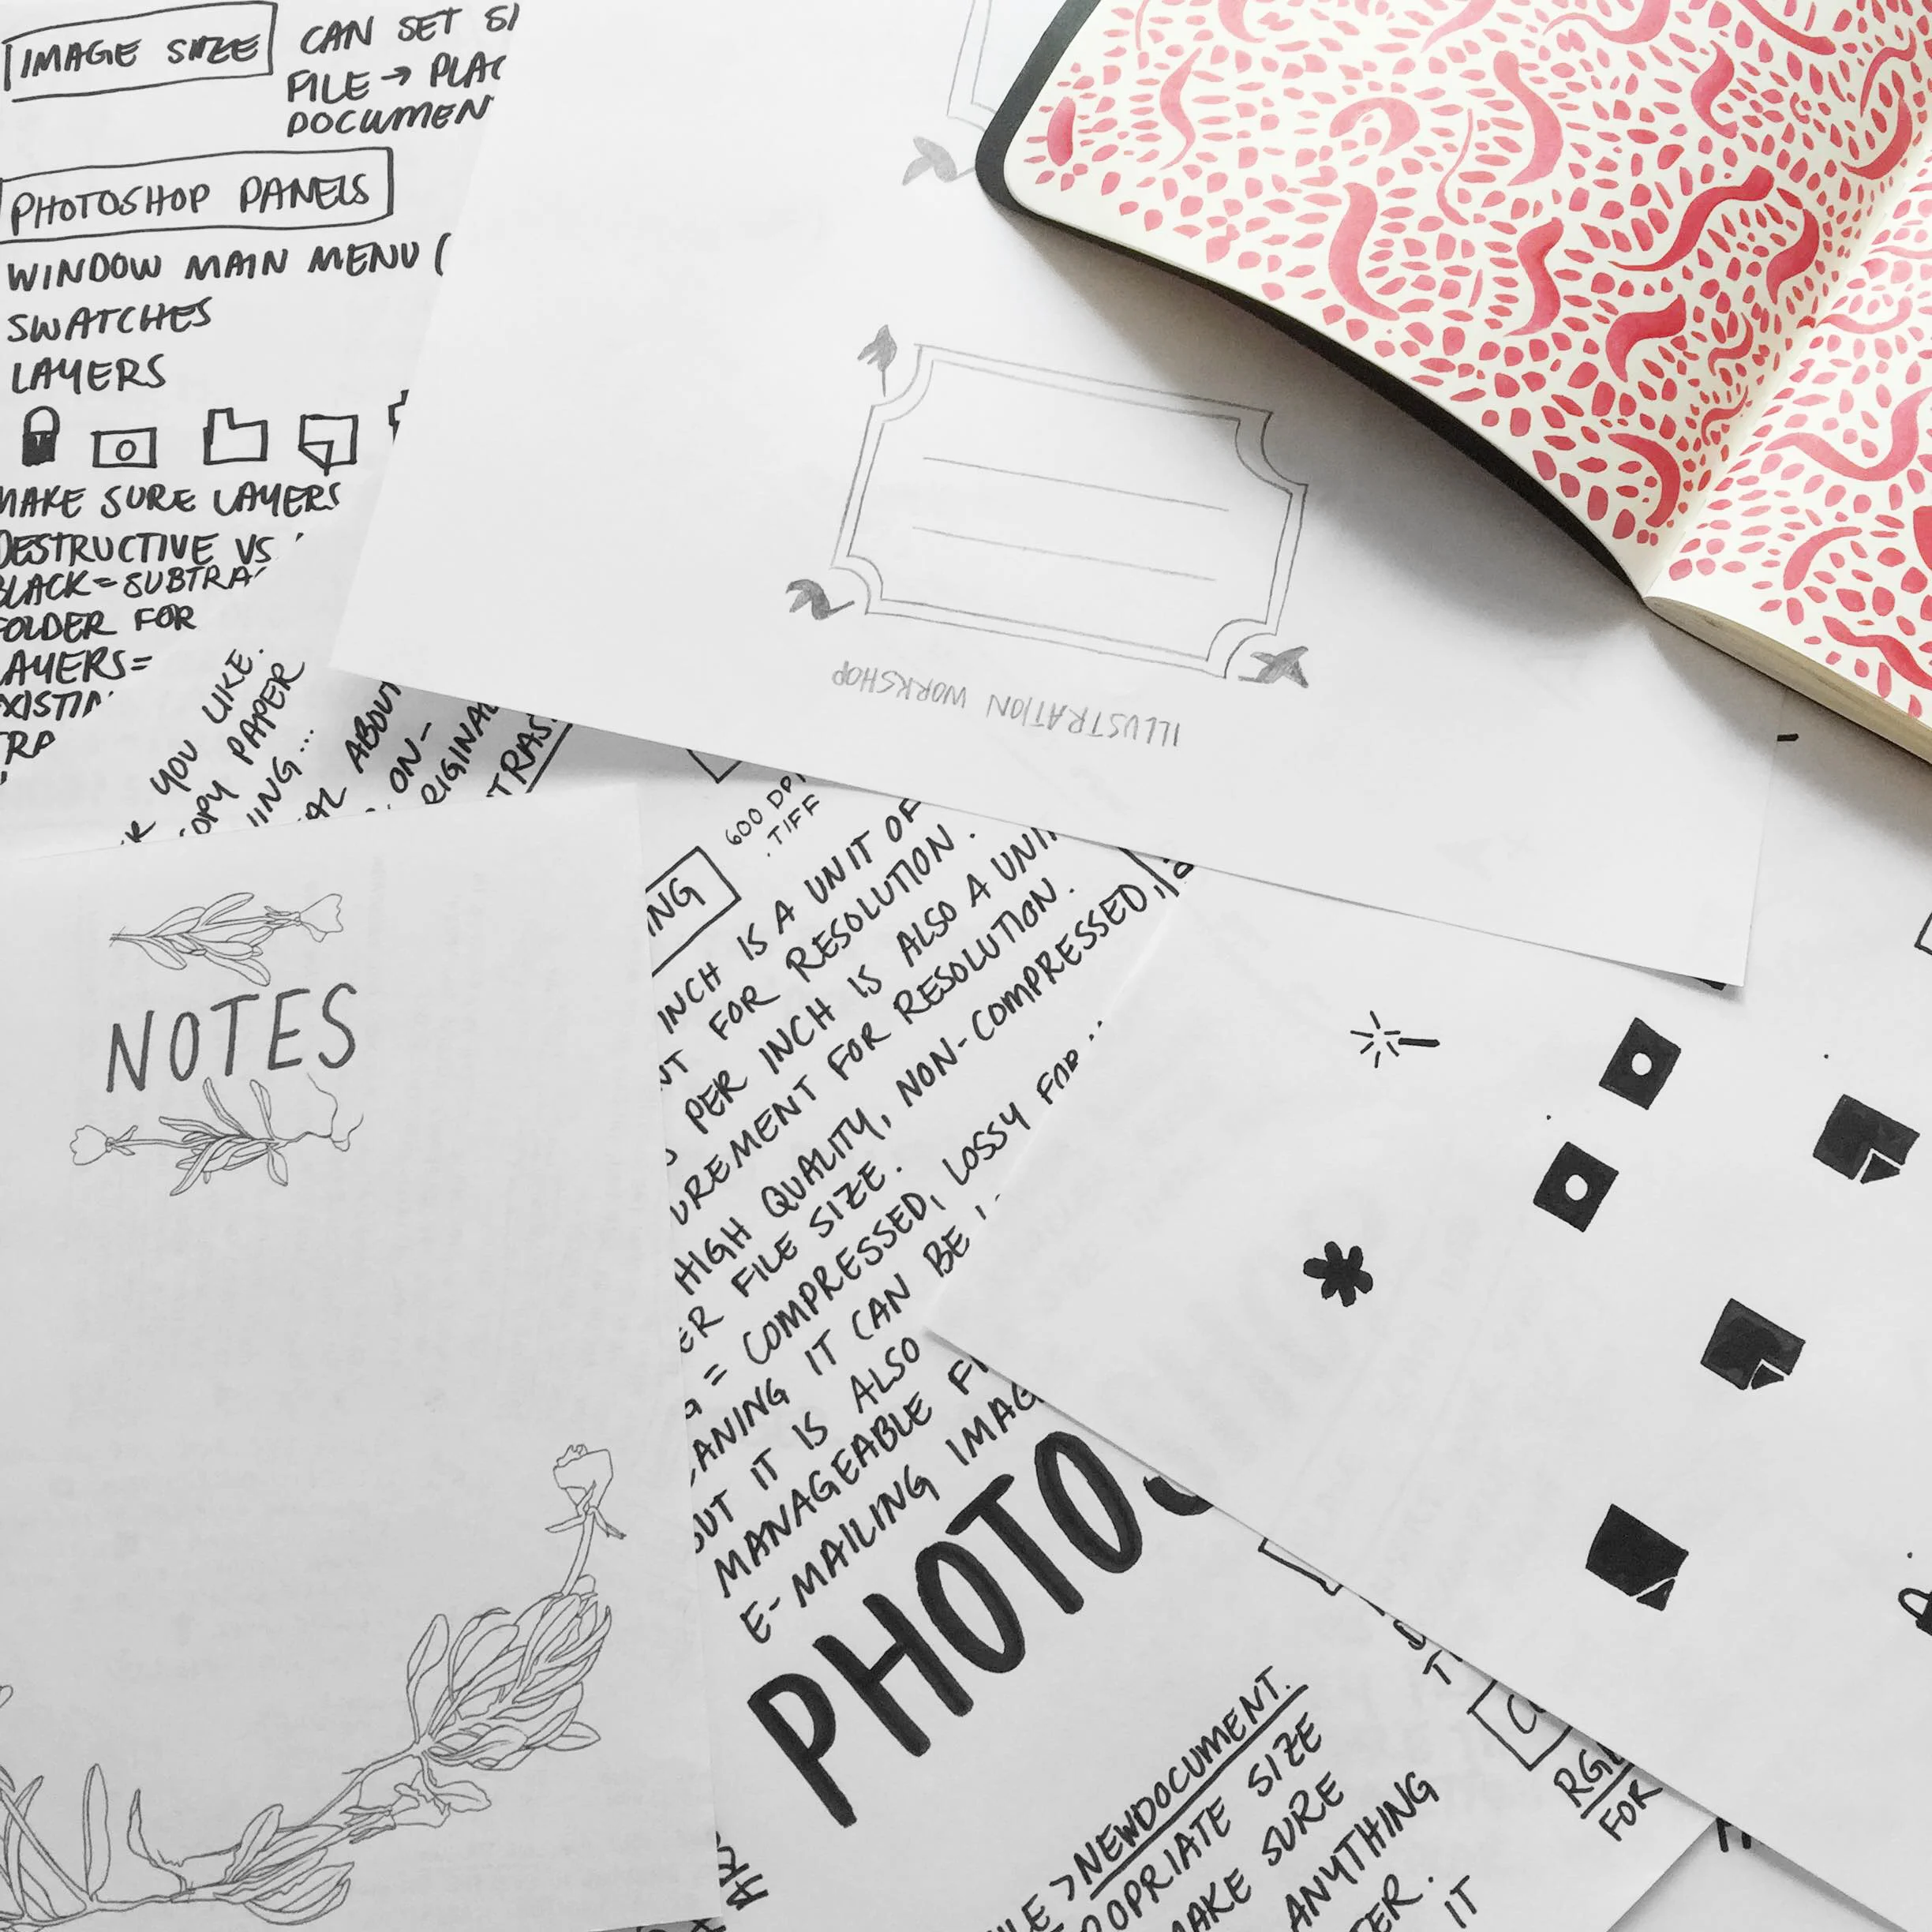 IMAGE SIZE
CAN SET
FILE → PLAC
DOCUMEN
PHOTOSHOP PANELS
WINDOW MAIN MENU (
SWATCHES
LAYERS
MAKE SURE LAYERS
DESTRUCTIVE VS
BLACK = SUBTRA
FOLDER FOR
LAYERS =
EXISTIN
YOU LIKE.
COPY PAPER
ING...
ABOUT
ON-
RIGINAL
TRAS
ILLUSTRATION WORKSHOP
NOTES
600 DPI
.TIFF
ING
INCH IS A UNIT OF
NT FOR RESOLUTION.
PER INCH IS ALSO A UNIT
UREMENT FOR RESOLUTION.
HIGH QUALITY, NON-COMPRESSED,
ER FILE SIZE.
G = COMPRESSED, LOSSY FOR
EANING IT CAN BE
BUT IT IS ALSO
MANAGEABLE FI
E-MAILING IMAG
PHOTOS
FILE > NEW DOCUMENT.
OPRIATE SIZE
MAKE SURE
ANYTHING
ER.
IT
RG
FOR